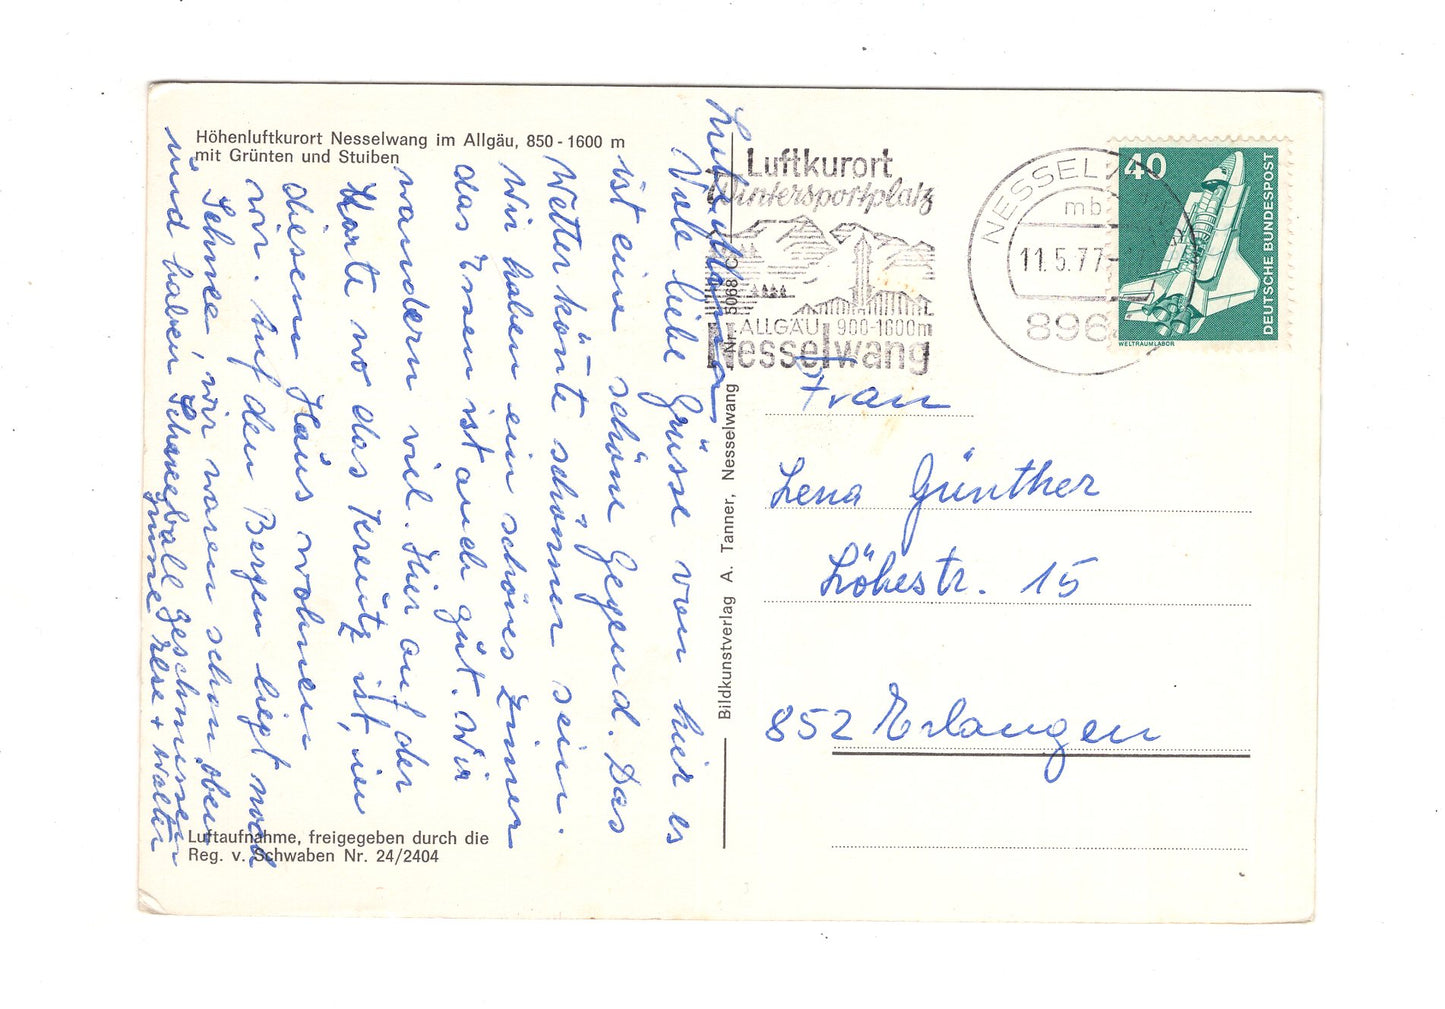 Höhenluftkurort Nesselwang im Allgäu, 850 - 1600 m
mit Grünten und Stuiben
Viele liebe Grüsse von hier es
ist eine schöne Gegend. Das
Wetter könte schöner sein.
Wir haben ein schönes Zimer
das Essen ist auch gut. Wir
wandern viel. Hier auf der
Karte wo das Kreutz ist, in
diesem Haus wohnen
wir. Auf den Bergen liegt noch
Schnee, wir waren schon oben
und haben Schneeball geschmissen
Ilse + Walter
Luftaufnahme, freigegeben durch die
Reg. v. Schwaben Nr. 24/2404
Bildkunstverlag A. Tanner, Nesselwang Nr. 5068 C
Luftkurort
Wintersportplatz
ALLGÄU 900-1600m
Nesselwang
NESSELW
mb
11.5.77
896
40
DEUTSCHE BUNDESPOST
WELTRAUMLABOR
Frau
Lena Günther
Löhestr. 15
852 Erlangen